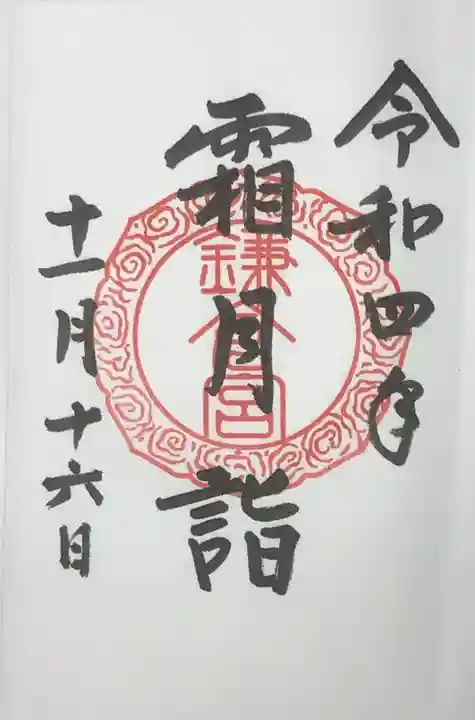 令和四年
霜月詣
鎌倉宮
十一月十六日